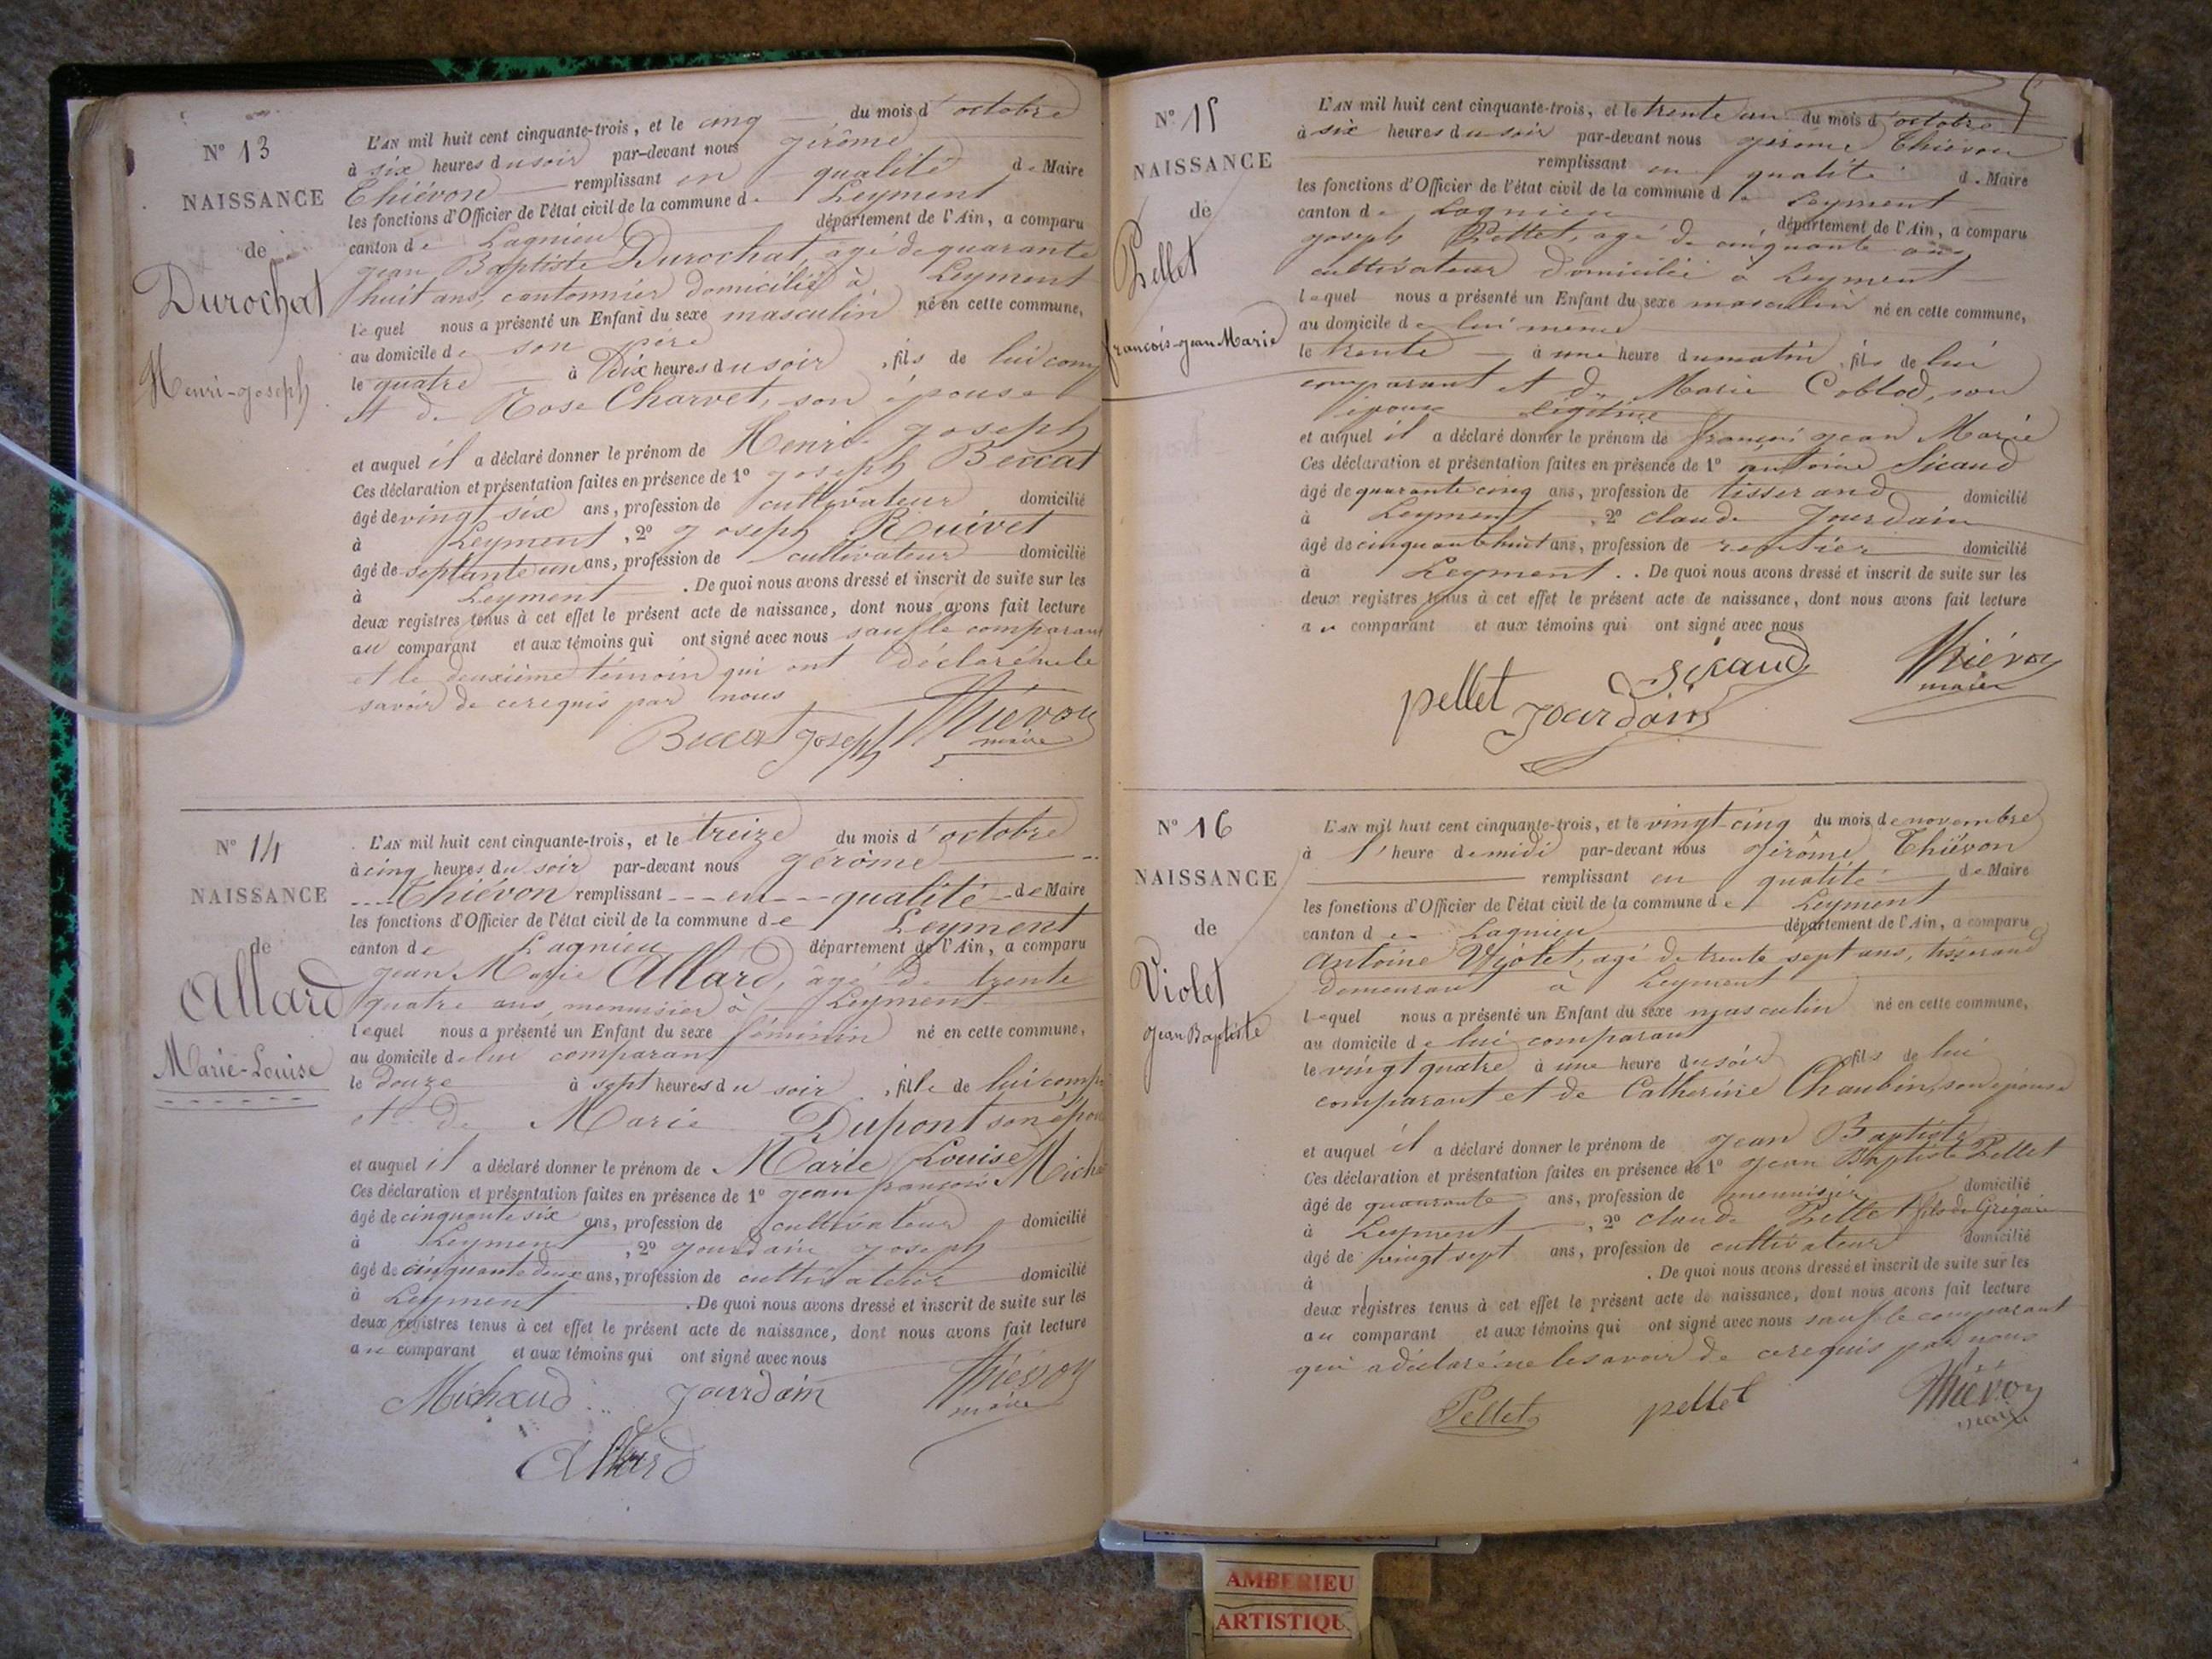 N° 13
NAISSANCE
de
Durochat
Henri-Joseph
L'AN mil huit cent cinquante-trois, et le cinq du mois d'octobre
à six heures du soir par-devant nous gérôme
Thiévon remplissant en qualité de Maire
les fonctions d'Officier de l'état civil de la commune de Leyment
canton de Lagnieu département de l'Ain, a comparu
jean Baptiste Durochat, agé de quarante
huit ans, cantonnier domicilié à Leyment
lequel nous a présenté un Enfant du sexe masculin né en cette commune,
au domicile de son père
le quatre à Dix heures du soir, fils de lui comp
et de Rose Charvet, son épouse
et auquel il a déclaré donner le prénom de Henri Joseph
Ces déclaration et présentation faites en présence de 1° joseph Beccat
âgé de vingt six ans, profession de cultivateur domicilié
à Leyment, 2° joseph Ruivet
âgé de septante un ans, profession de cultivateur domicilié
à Leyment. De quoi nous avons dressé et inscrit de suite sur les
deux registres tenus à cet effet le présent acte de naissance, dont nous avons fait lecture
au comparant et aux témoins qui ont signé avec nous sauf le comparant
et le deuxième témoin qui ont déclaré ne le
savoir de ce requis par nous
Beccat joseph Thiévon
maire
N° 14
NAISSANCE
de
Allard
Marie-Louise
L'AN mil huit cent cinquante-trois, et le treize du mois d'octobre
à cinq heures du soir par-devant nous gérôme
Thiévon remplissant en qualité de Maire
les fonctions d'Officier de l'état civil de la commune de Leyment
canton de Lagnieu département de l'Ain, a comparu
jean Marie Allard, âgé de trente
quatre ans, menuisier à Leyment
lequel nous a présenté un Enfant du sexe féminin né en cette commune,
au domicile de lui comparant
le douze à sept heures du soir, fille de lui comp
et de Marie Dupont son épou
et auquel il a déclaré donner le prénom de Marie Louise
Ces déclaration et présentation faites en présence de 1° jean françois Micha
âgé de cinquante six ans, profession de cultivateur domicilié
à Leyment, 2° jourdain joseph
âgé de cinquante deux ans, profession de cultivateur domicilié
à Leyment. De quoi nous avons dressé et inscrit de suite sur les
deux registres tenus à cet effet le présent acte de naissance, dont nous avons fait lecture
au comparant et aux témoins qui ont signé avec nous
Michaud jourdain Thiévon
maire
Allard
5
N° 15
NAISSANCE
de
Pellet
françois-jean Marie
L'AN mil huit cent cinquante-trois, et le trente un du mois d'octobre
à six heures du soir par-devant nous gérome Thiévon
remplissant en qualité de Maire
les fonctions d'Officier de l'état civil de la commune de Leyment
canton de Lagnieu département de l'Ain, a comparu
joseph Pellet, agé de cinquante ans
cultivateur domicilié à Leyment
lequel nous a présenté un Enfant du sexe masculin né en cette commune,
au domicile de lui meme
le trente à une heure du matin, fils de lui
comparant et de Marie Coblod, son
épouse légitime
et auquel il a déclaré donner le prénom de françois jean Marie
Ces déclaration et présentation faites en présence de 1° antoine Sicaud
âgé de quarante cinq ans, profession de tisserand domicilié
à Leyment, 2° claude Jourdain
âgé de cinquante huit ans, profession de rentier domicilié
à Leyment. De quoi nous avons dressé et inscrit de suite sur les
deux registres tenus à cet effet le présent acte de naissance, dont nous avons fait lecture
au comparant et aux témoins qui ont signé avec nous
pellet Sicaud Thiévon
maire
jourdain
N° 16
NAISSANCE
de
Violet
jean Baptiste
L'AN mil huit cent cinquante-trois, et le vingt-cinq du mois de novembre
à l'heure de midi par-devant nous Jérôme Thiévon
remplissant en qualité de Maire
les fonctions d'Officier de l'état civil de la commune de Leyment
canton de Lagnieu département de l'Ain, a comparu
Antoine Violet, agé de trente sept ans, tisserand
demeurant à Leyment
lequel nous a présenté un Enfant du sexe masculin né en cette commune,
au domicile de lui comparant
le vingt quatre à une heure du soir fils de lui
comparant et de Catherine Chaubin, son épouse
et auquel il a déclaré donner le prénom de jean Baptiste
Ces déclaration et présentation faites en présence de 1° jean Baptiste Pellet
âgé de quarante ans, profession de menuisier domicilié
à Leyment, 2° claude Pellet fils de Grégoire
âgé de vingt sept ans, profession de cultivateur domicilié
à . De quoi nous avons dressé et inscrit de suite sur les
deux registres tenus à cet effet le présent acte de naissance, dont nous avons fait lecture
au comparant et aux témoins qui ont signé avec nous sauf le comparant
qui a déclaré ne le savoir de ce requis par nous
Pellet pellet Thiévon
maire
AMBERIEU
ARTISTIQU